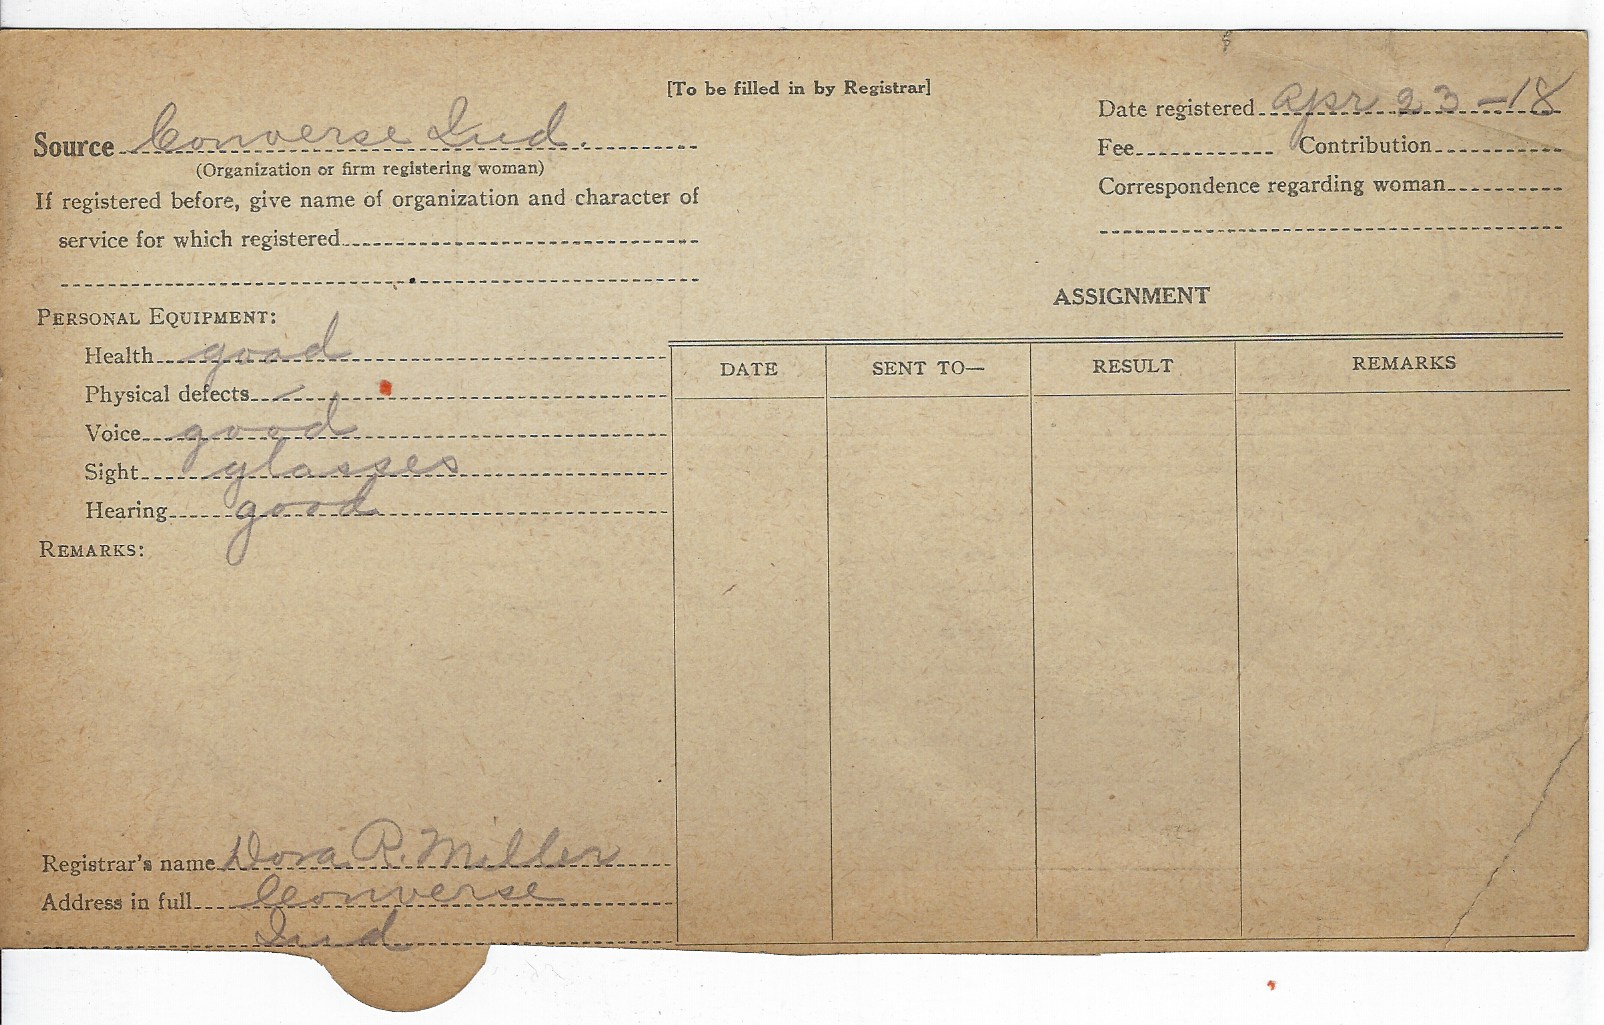 [To be filled in by Registrar]
Source Converse Ind.
(Organization or firm registering woman)
If registered before, give name of organization and character of
service for which registered
Date registered Apr 23-18
Fee Contribution
Correspondence regarding woman
PERSONAL EQUIPMENT:
Health good
Physical defects —
Voice good
Sight glasses
Hearing good
REMARKS:
Registrar's name Dora R. Miller
Address in full Converse
Ind
ASSIGNMENT
DATE SENT TO— RESULT REMARKS